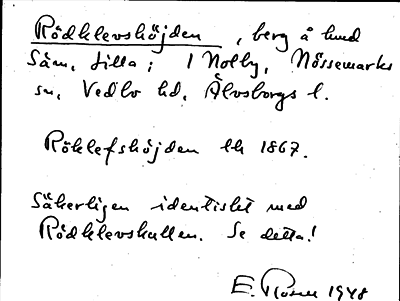 Rödklevshöjden, berg å hmd
Säm. Lilla; 1 Nolby, Nössemarks
sn, Vedbo hd, Älvsborgs l.
Röklefshöjden lk 1867.
Säkerligen identiskt med
Rödklevskullen. Se detta!
E. Rosell 1948